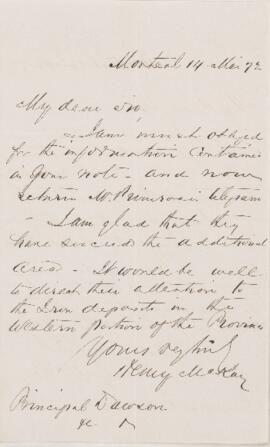 Montreal 14 Mar 72
My dear Sir,
I am much obliged
for the information contained
in your note - and now
return Mr. Primrose's telegram
- I am glad that they
have secured the additional
area - It would be well
to direct their attention to
the Iron deposits in the
Western portion of the Province
Yours very truly
Henry McKay
Principal Dawson
&c